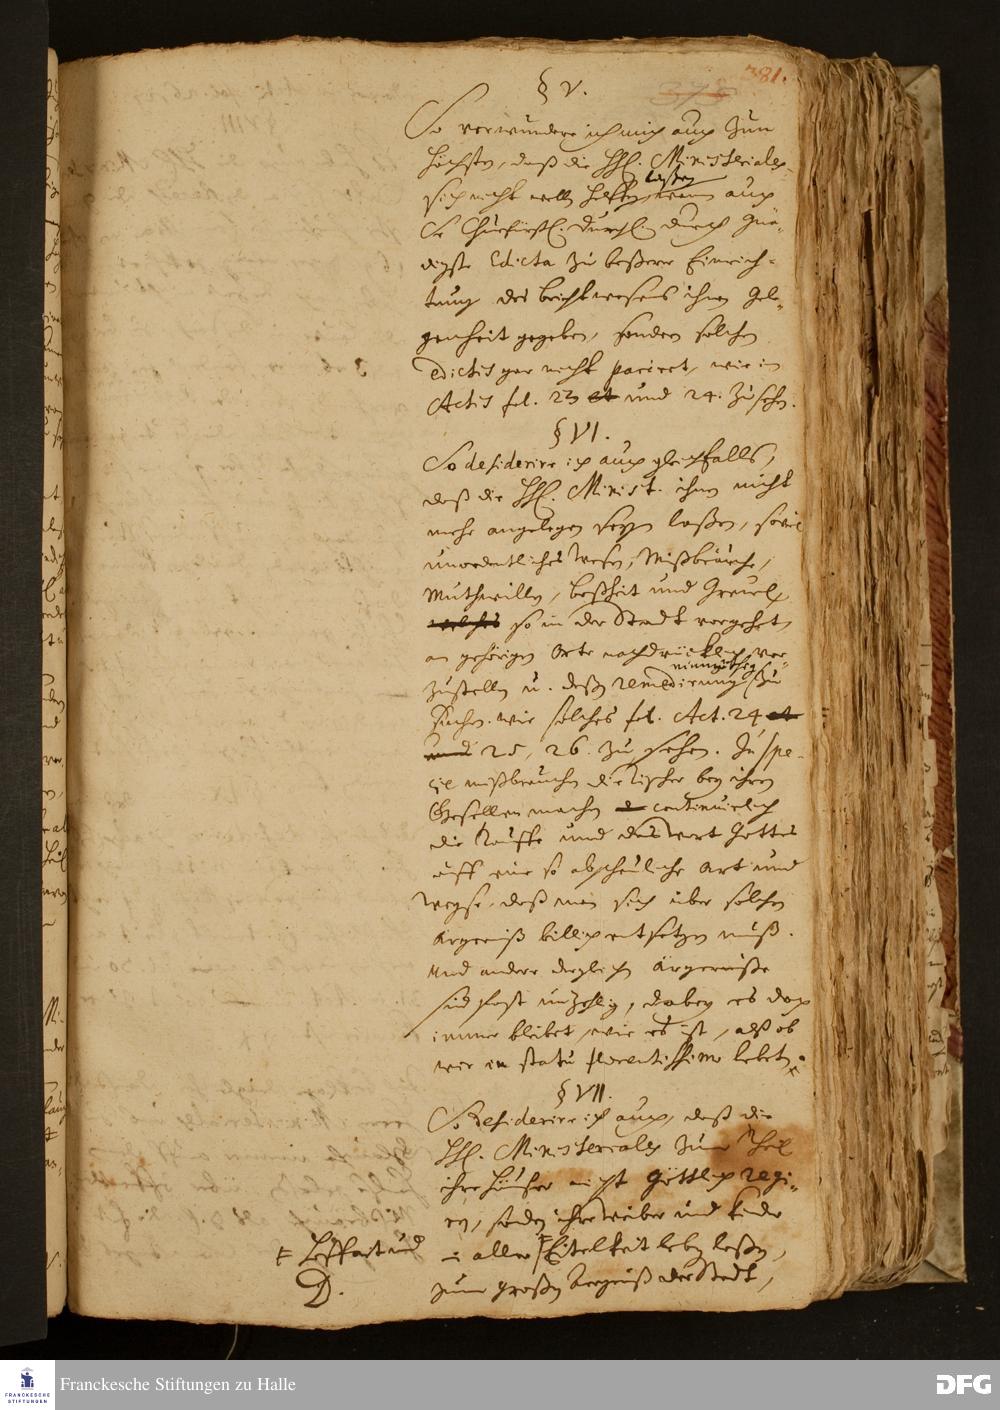 381.
§ V.
So verwundere ich mich auch zum
höchsten, daß die HH. Ministeriales
sich nicht wolln helffen laßen, wenn auch
Se Churfürstl. Durchl. durch Gnä-
digste Edicta zu beßerer Einrich-
tung des beichtwesens ihnen Gele-
genheit gegeben, sondern solchen
Edictis gar nicht pariret, wie in
Actis fol. 23 und 24. zu sehn.
§ VI.
So desiderire ich auch gleichfalls,
daß die HH. Minist. ihnen nicht
mehr angelegen seyn laßen, soviel
unordentliches Wesen, Mißbräuche,
Muthwilln, boßheit und Greuel,
welches so in der Stadt vorgehet
an gehörigen Orte nachdrücklich vor-
zustelln u. deßen remedirung einmüthig zu
suchen. wie solches fol. Act. 24
und 25, 26. zu sehen. In spe-
cie mißbrauchen die Tischer bey ihren
Gesellen machen continuirlich
die Tauffe und das Wort Gottes
auff eine so abscheuliche Art und
Weyse, daß man sich über solchen
Ärgerniß billich entsetzen muß.
Und andere dergleichen Ärgerniße
sind fast unzehlig, dabey es doch
immer bleibet, wie es ist, alß ob
wir in statu florentissimo lebeten.
§ VII.
So desiderire ich auch, daß die
HH. Ministeriales zum Theil
ihre Häuser nicht Göttlich regi-
ren, sondern ihre weiber und Kinder
in aller Eitelkeit leben laßen,
zum großen Ärgerniß der Stadt,
Hoffart und
D.
Franckesche Stiftungen zu Halle
DFG
FRANCKESCHE
STIFTUNGEN